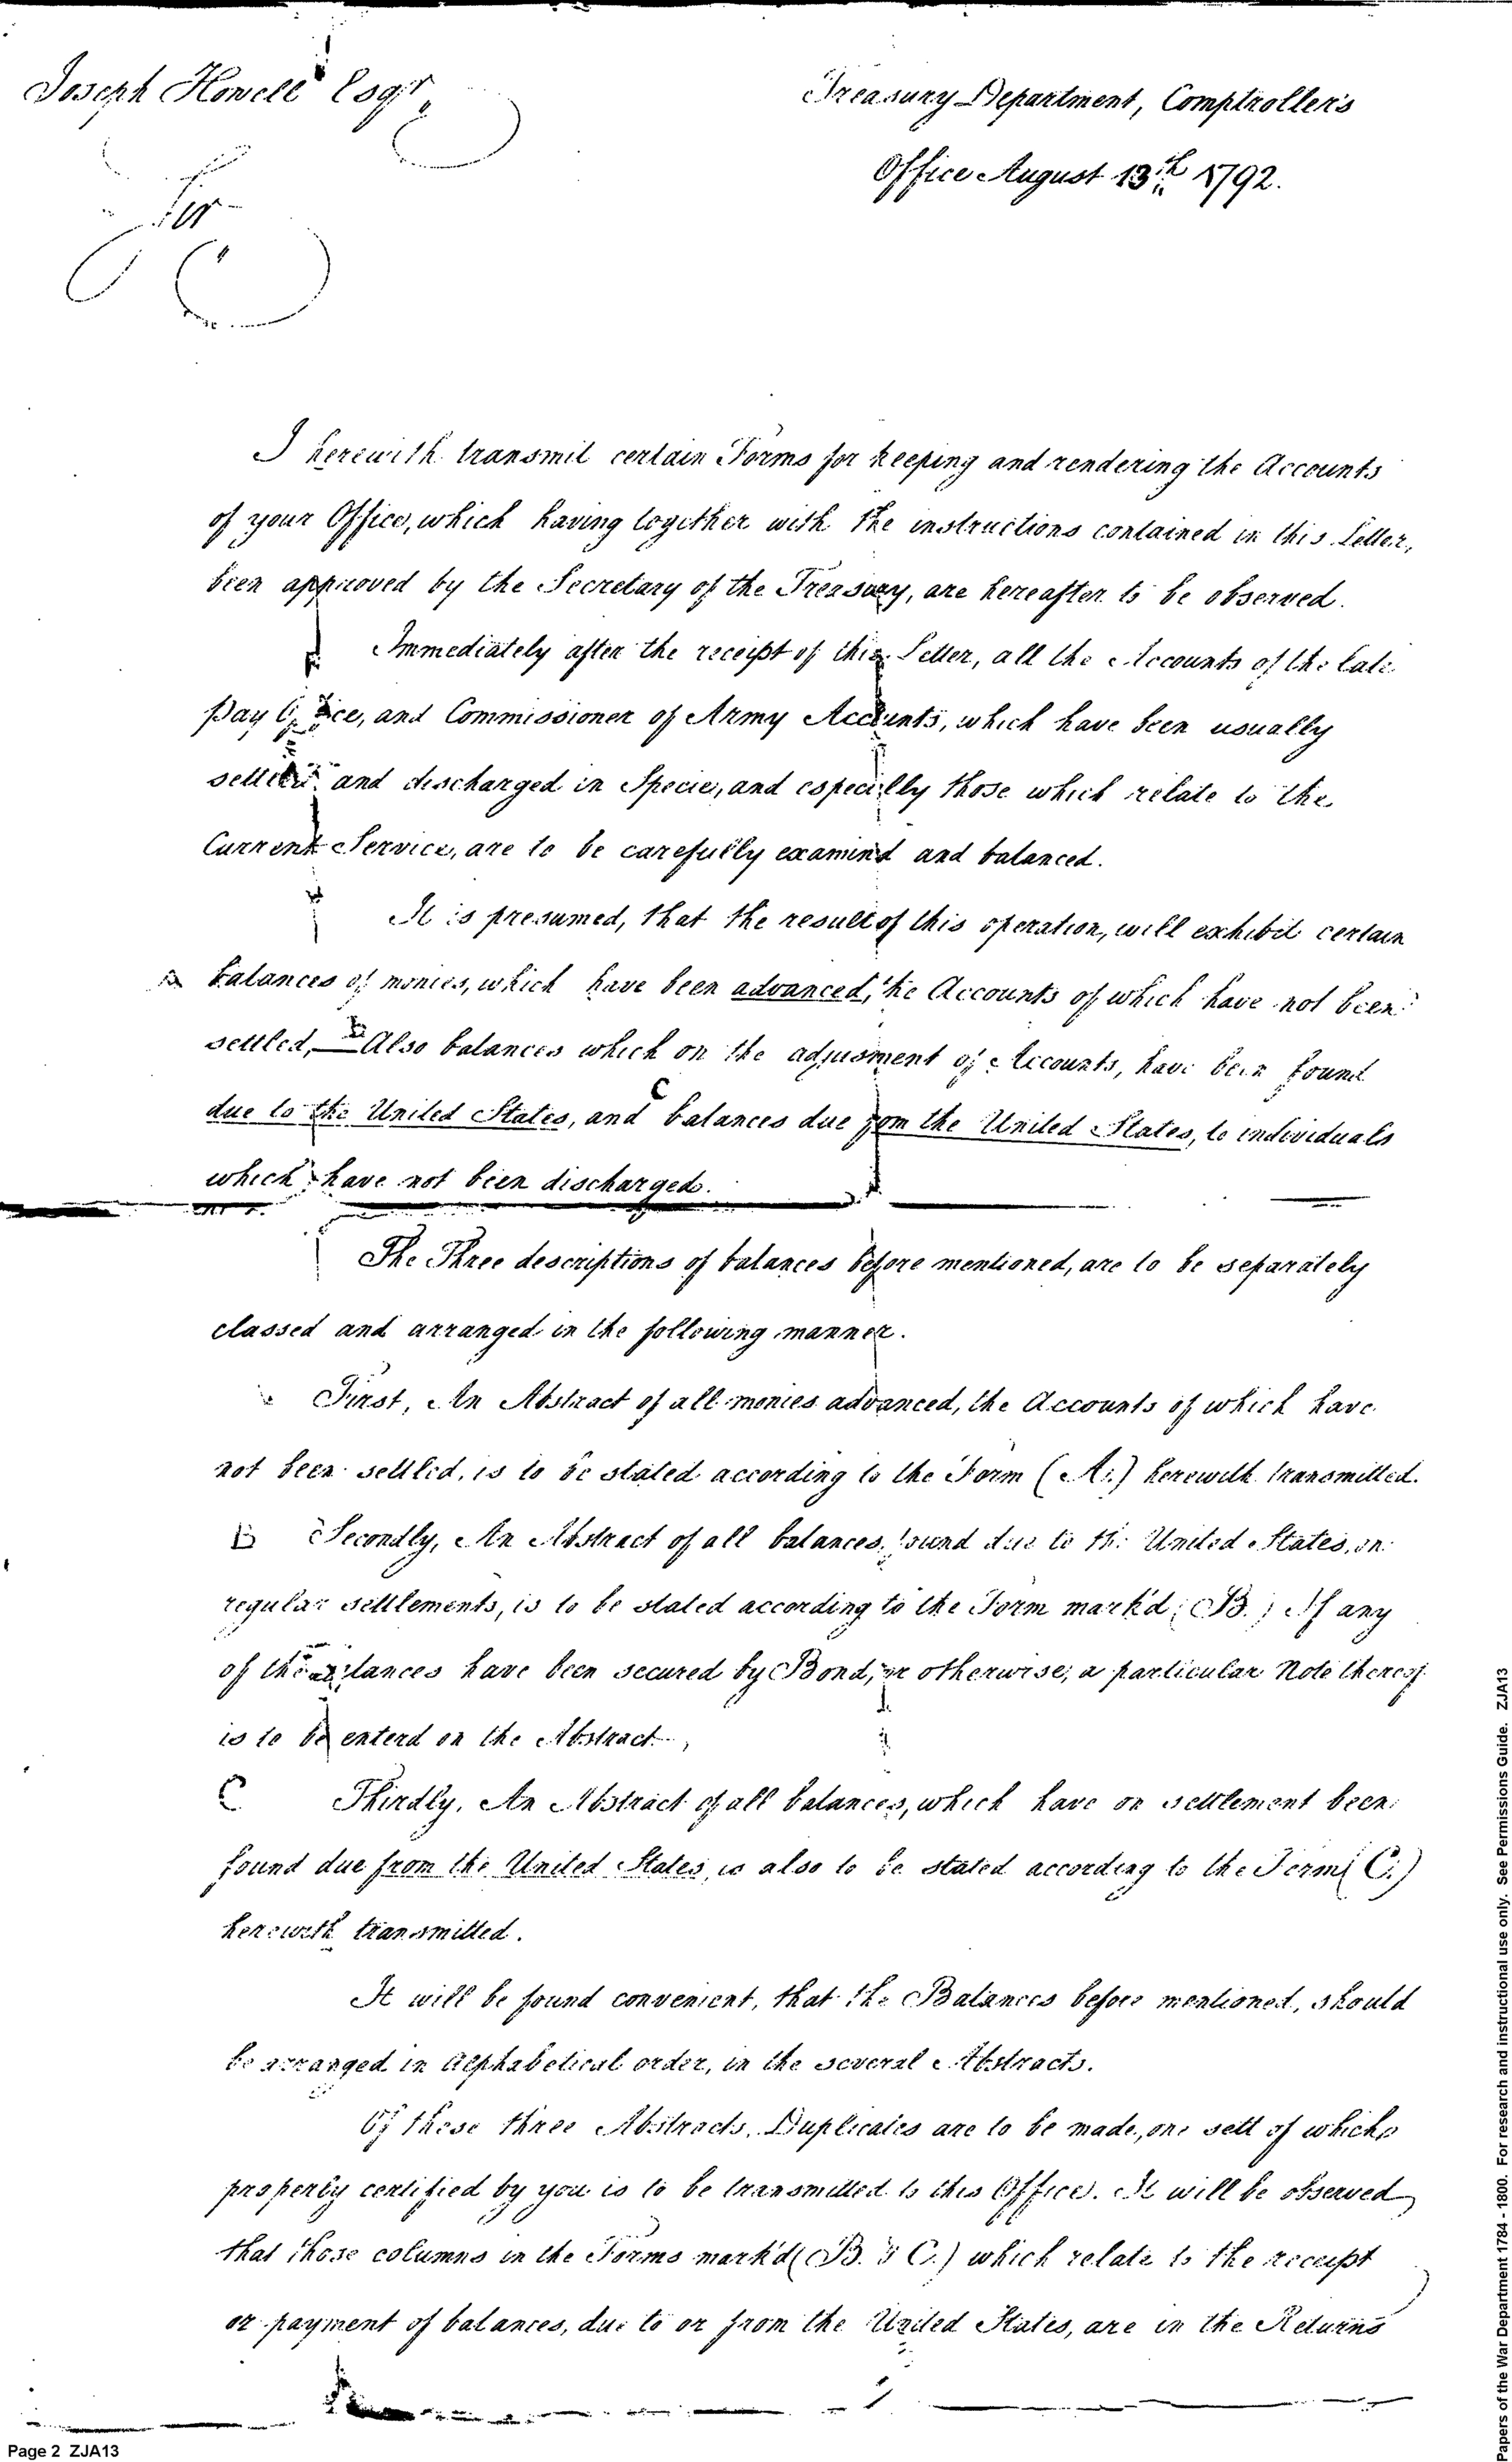 Joseph Howell Esqr.
Treasury Department, Comptroller's
Office August 13th 1792.
Sir
I herewith transmit certain Forms for keeping and rendering the Accounts
of your Office, which having together with the instructions contained in this Letter,
been approved by the Secretary of the Treasury, are hereafter to be observed.
Immediately after the receipt of this Letter, all the Accounts of the late
Pay Office, and Commissioner of Army Accounts, which have been usually
settled and discharged in Specie, and especially those which relate to the
Current Service, are to be carefully examind and balanced.
It is presumed, that the result of this operation, will exhibit certain
A balances of monies, which have been advanced, the Accounts of which have not been
settled, — B Also balances which on the adjusment of Accounts, have been found
due to the United States, and C balances due from the United States, to individuals
which have not been discharged.
The Three descriptions of balances before mentioned, are to be separately
classed and arranged in the following manner.
First, An Abstract of all monies advanced, the Accounts of which have
not been settled, is to be stated according to the Form (A.) herewith transmitted.
B Secondly, An Abstract of all balances, found due to the United States, on
regular settlements, is to be stated according to the Form mark'd (B.) If any
of the balances have been secured by Bond, or otherwise, a particular Note thereof
is to be enterd on the Abstract.
C Thirdly, An Abstract of all balances, which have on settlement been
found due from the United States, is also to be stated according to the Form (C.)
herewith transmitted.
It will be found convenient, that the Balances before mentioned, should
be arranged in Alphabetical order, in the several Abstracts.
Of these three Abstracts, Duplicates are to be made, one sett of which
properly certified by you is to be transmitted to this Office. It will be observed
that those columns in the Forms mark'd (B. & C.) which relate to the receipt
or payment of balances, due to or from the United States, are in the Returns
Page 2 ZJA13
Papers of the War Department 1784 - 1800. For research and instructional use only. See Permissions Guide. ZJA13